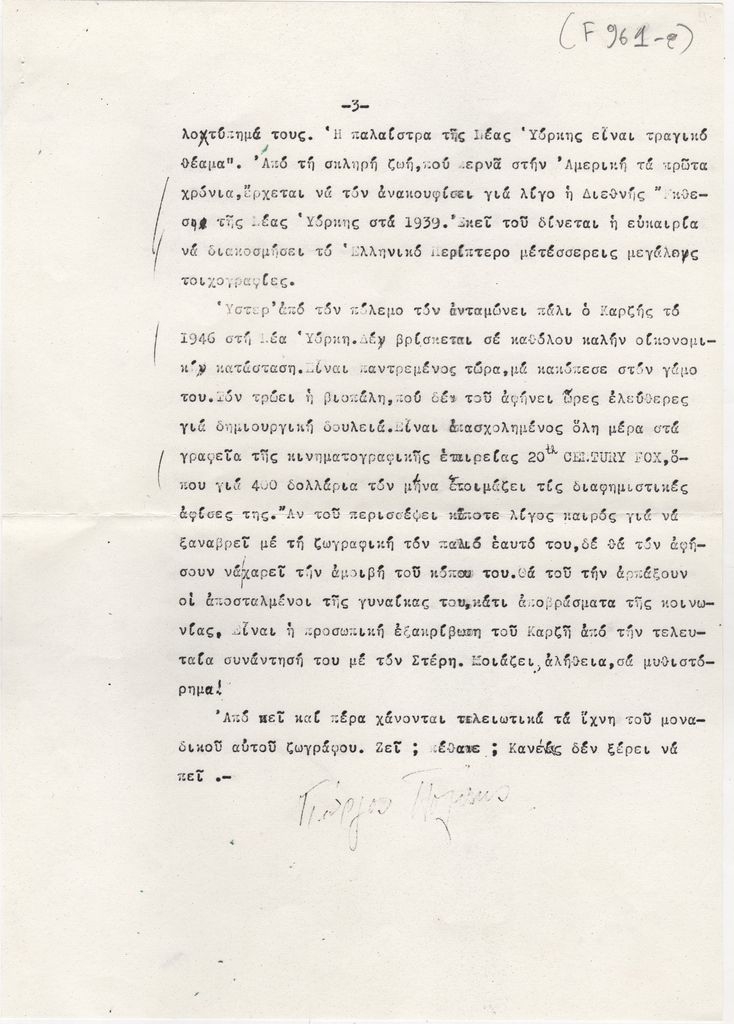 (F 961-e)
-3-
λοχτύπημά τους. Ἡ παλαίστρα τῆς Νέας Ὑόρκης εἶναι τραγικό
θέαμα". Ἀπό τή σκληρή ζωή,πού περνᾶ στήν Ἀμερική τά πρῶτα
χρόνια,ἔρχεται νά τόν ἀνακουφίσει γιά λίγο ἡ Διεθνής Ἔκθε-
ση τῆς Νέας Ὑόρκης στά 1939.Ἐκεῖ τοῦ δίνεται ἡ εὐκαιρία
νά διακοσμήσει τό Ἑλληνικό Περίπτερο μέτέσσερεις μεγάλες
τοιχογραφίες.
Ὕστερ'ἀπό τόν πόλεμο τόν ἀνταμώνει πάλι ὁ Καρζῆς τό
1946 στή Νέα Ὑόρκη.Δέν βρίσκεται σέ καθόλου καλήν οἰκονομι-
κή κατάσταση.Εἶναι παντρεμένος τώρα,μά κακόπεσε στόν γάμο
του.Τόν τρώει ἡ βιοπάλη,πού δέν τοῦ ἀφήνει ὧρες ἐλεύθερες
γιά δημιουργική δουλειά.Εἶναι ἀπασχολημένος ὅλη μέρα στά
γραφεῖα τῆς κινηματογραφικῆς ἑταιρείας 20th CENTURY FOX,ὅ-
που γιά 400 δολλάρια τόν μῆνα ἑτοιμάζει τίς διαφημιστικές
ἀφίσες της."Ἄν τοῦ περισσέψει κάποτε λίγος καιρός γιά νά
ξαναβρεῖ μέ τή ζωγραφική τόν παλιό ἑαυτό του,δέ θά τόν ἀφή-
σουν νά χαρεῖ τήν ἀμοιβή τοῦ κόπου του.Θά τοῦ τήν ἁρπάξουν
οἱ ἀποσταλμένοι τῆς γυναίκας του,κάτι ἀποβράσματα τῆς κοινω-
νίας. Εἶναι ἡ προσωπική ἐξακρίβωση τοῦ Καρζῆ ἀπό τήν τελευ-
ταία συνάντησή του μέ τόν Στέρη. Μοιάζει,ἀλήθεια,σά μυθιστό-
ρημα!
Ἀπό κεῖ καί πέρα χάνονται τελειωτικά τά ἴχνη τοῦ μονα-
δικοῦ αὐτοῦ ζωγράφου. Ζεῖ ; πέθανε ; Κανένας δέν ξέρει νά
πεῖ .-
Γιώργος